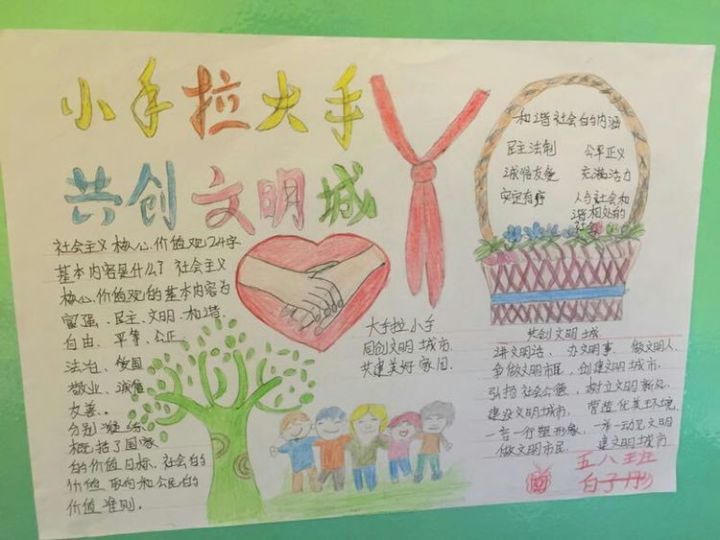 小手拉大手
共创文明城
社会主义核心价值观24字
基本内容是什么？社会主义
核心价值观的基本内容为
富强、民主、文明、和谐、
自由、平等、公正、
法治、爱国
敬业、诚信
友善。
分别凝练
概括了国家
的价值目标、社会的
价值取向和公民的
价值准则。
大手拉小手
同创文明城市
共建美好家园.
和谐社会的内涵
民主法制 公平正义
诚信友爱 充满活力
安定有序 人与社会和
谐相处的
社会
共创文明城
讲文明话、办文明事、做文明人、
争做文明市民,创建文明城市.
弘扬社会公德,树立文明新风.
建设文明城市,营造优美环境.
一言一行塑形象,一举一动见文明
做文明市民 建文明城市
五八班
白子彤